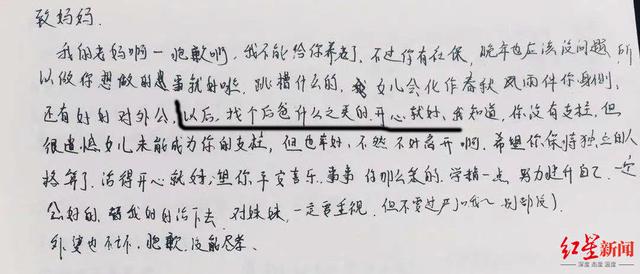 致妈妈.
我的老妈啊一抱歉啊,我不能给你养老了.不过你有社保,晚年也应该没问题,所
以做你想做的事就好啦.跳槽什么的.女儿会化作春秋风雨伴你身侧,
还有好的对外公.以后,找个后爸什么之类的.开心就好.我知道.你没有支柱.但
很遗憾女儿未能成为你的支柱,但也幸好,不然不好离开啊.希望你保持独立的人
格算了.活得开心就好.望你平安喜乐.事事 你那么笨的.学精一点,努力提升自己.一定
会好的.替我好好活下去.对妹妹,一定要重视.但不要过严
外婆也不坏.抱歉.没能尽孝.
红星新闻
深度 态度 温度